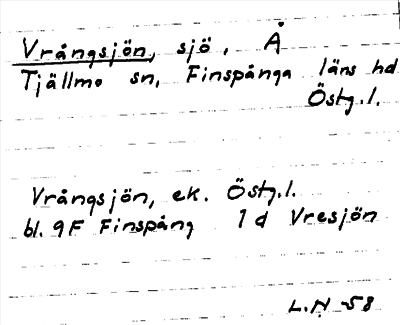 Vrångsjön, sjö, Å
Tjällmo sn, Finspånga läns hd
Östg.l.
Vrångsjön, ek. Östg.l.
bl. 9F Finspång 1 d Vresjön
L.N -58